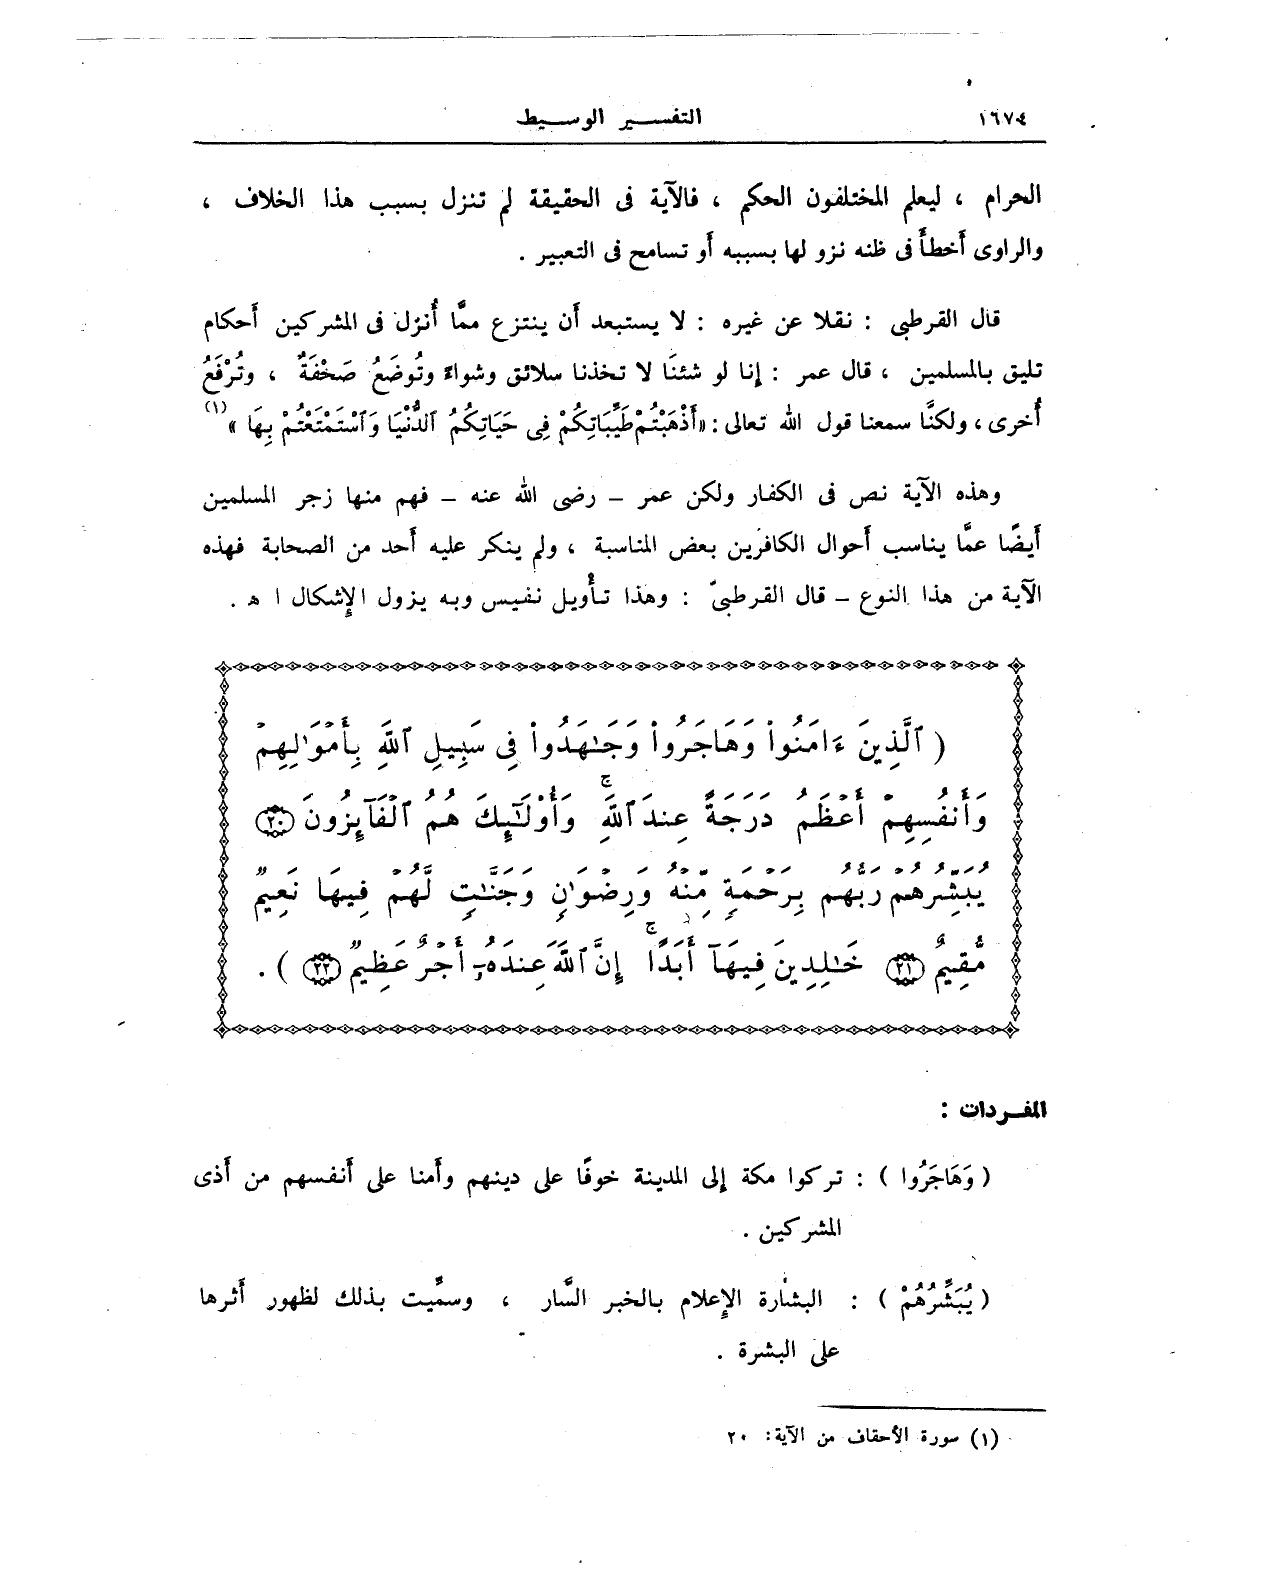 ١٦٧٤
التفسير الوسيط
الحرام ، ليعلم المختلفون الحكم ، فالآية فى الحقيقة لم تنزل بسبب هذا الخلاف ،
والراوى أخطأ فى ظنه نزو لها بسببه أو تسامح فى التعبير .
قال القرطبى : نقلا عن غيره : لا يستبعد أن ينتزع ممَّا أُنزل فى المشركين أحكام
تليق بالمسلمين ، قال عمر : إنا لو شئنَا لا تخذنا سلائق وشواءً وتُوضَعُ صَحْفَةٌ ، وتُرْفَعُ
أُخرى ، ولكنَّا سمعنا قول الله تعالى : « أَذْهَبْتُمْ طَيِّبَاتِكُمْ فِى حَيَاتِكُمُ ٱلدُّنْيَا وَٱسْتَمْتَعْتُمْ بِهَا » (١)
وهذه الآية نص فى الكفار ولكن عمر – رضى الله عنه – فهم منها زجر المسلمين
أيضًا عمَّا يناسب أحوال الكافرين بعض المناسبة ، ولم ينكر عليه أحد من الصحابة فهذه
الآية من هذا النوع – قال القرطبىّ : وهذا تأُويل نفيس وبه يزول الإشكال ا ه .
( ٱلَّذِينَ ءَامَنُوا۟ وَهَاجَرُوا۟ وَجَـٰهَدُوا۟ فِى سَبِيلِ ٱللَّهِ بِأَمْوَٰلِهِمْ
وَأَنفُسِهِمْ أَعْظَمُ دَرَجَةً عِندَ ٱللَّهِ ۚ وَأُو۟لَـٰٓئِكَ هُمُ ٱلْفَآئِزُونَ ﴿٢٠﴾
يُبَشِّرُهُمْ رَبُّهُم بِرَحْمَةٍ مِّنْهُ وَرِضْوَٰنٍ وَجَنَّـٰتٍ لَّهُمْ فِيهَا نَعِيمٌ
مُّقِيمٌ ﴿٢١﴾ خَـٰلِدِينَ فِيهَآ أَبَدًا ۚ إِنَّ ٱللَّهَ عِندَهُۥٓ أَجْرٌ عَظِيمٌ ﴿٢٢﴾ ) .
المفردات :
( وَهَاجَرُوا ) : تركوا مكة إلى المدينة خوفًا على دينهم وأَمنا على أَنفسهم من أَذى
المشركين .
( يُبَشِّرُهُمْ ) : البشارة الإعلام بالخبر السَّار ، وسمِّيت بذلك لظهور أَثرها
على البشرة .
(١) سورة الأحقاف من الآية: ٢٠